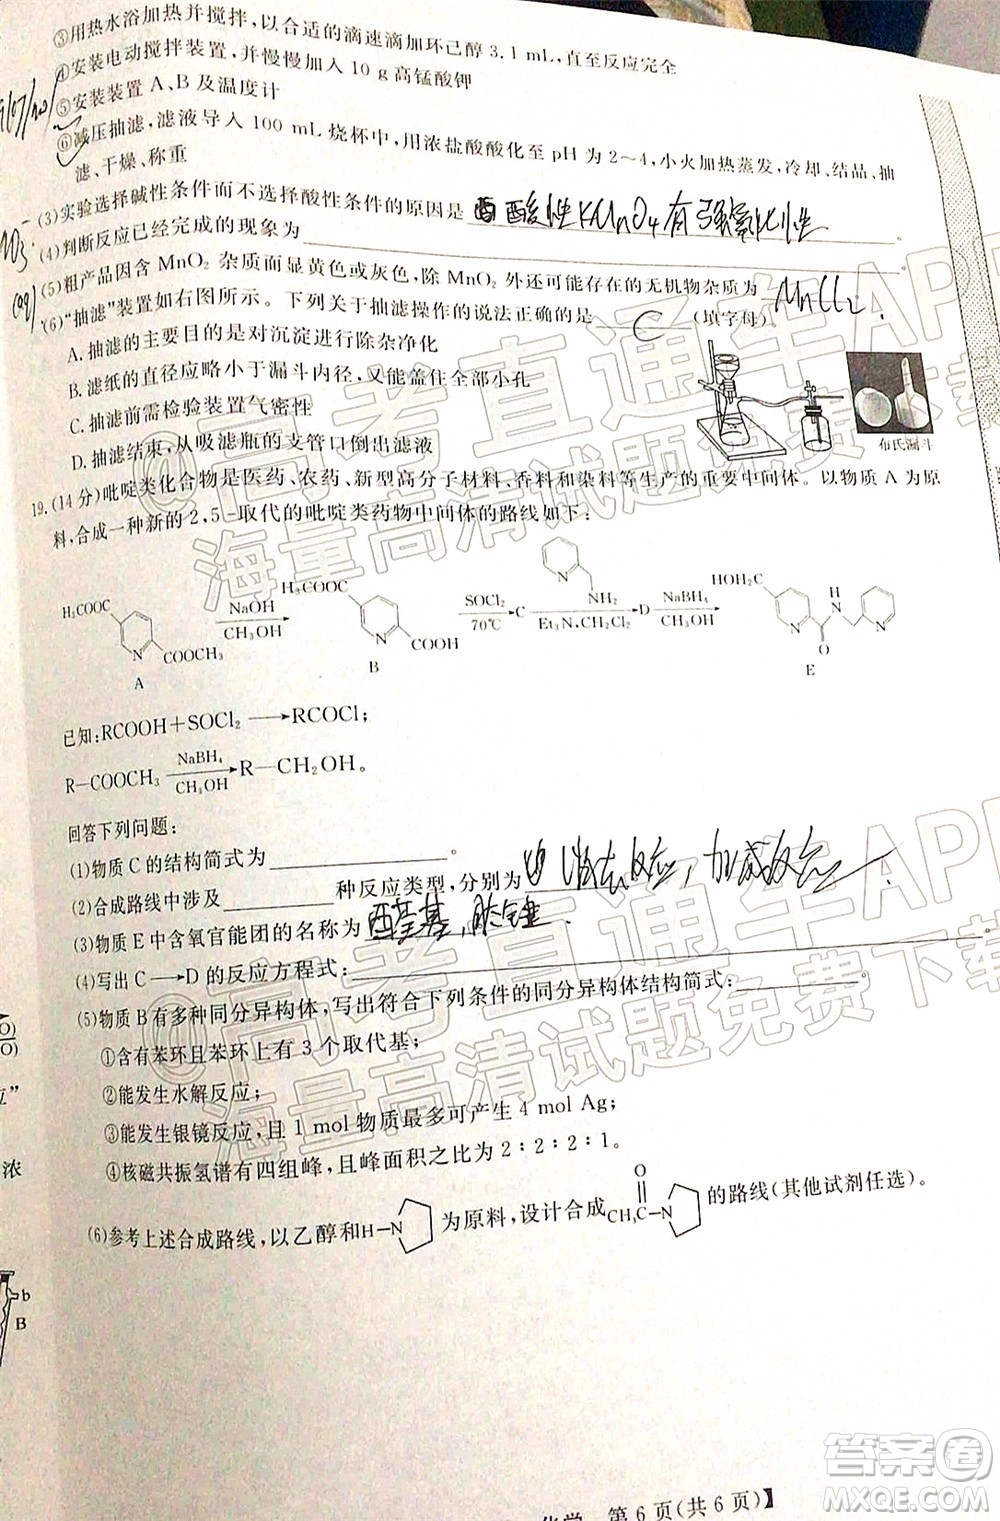 ③用热水浴加热并搅拌，以合适的滴速滴加环己醇 3.1 mL，直至反应完全
④安装电动搅拌装置，并慢慢加入 10 g 高锰酸钾
⑤安装装置 A、B 及温度计
⑥减压抽滤，滤液导入 100 mL 烧杯中，用浓盐酸酸化至 pH 为 2～4，小火加热蒸发，冷却、结晶、抽
滤、干燥、称重
(3)实验选择碱性条件而不选择酸性条件的原因是 酸性KMnO4有强氧化性
(4)判断反应已经完成的现象为
(5)粗产品因含 MnO₂ 杂质而显黄色或灰色，除 MnO₂ 外还可能存在的无机物杂质为 MnCl2.
(6)“抽滤”装置如右图所示。下列关于抽滤操作的说法正确的是 C (填字母)。
A. 抽滤的主要目的是对沉淀进行除杂净化
B. 滤纸的直径应略小于漏斗内径，又能盖住全部小孔
C. 抽滤前需检验装置气密性
D. 抽滤结束，从吸滤瓶的支管口倒出滤液
布氏漏斗
19. (14 分)吡啶类化合物是医药、农药、新型高分子材料、香料和染料等生产的重要中间体。以物质 A 为原
料，合成一种新的 2,5-取代的吡啶类药物中间体的路线如下：
H₃COOC
N
COOCH₃
A
NaOH
CH₃OH
H₃COOC
N
COOH
B
SOCl₂
70℃
C
N
NH₂
Et₃N,CH₂Cl₂
D
NaBH₄
CH₃OH
HOH₂C
N
H
N
O
N
E
已知：RCOOH＋SOCl₂ ⟶ RCOCl；
R－COOCH₃ NaBH₄ CH₃OH R－CH₂OH。
回答下列问题：
(1)物质 C 的结构简式为 。
(2)合成路线中涉及 种反应类型，分别为 反应，加成反应.
(3)物质 E 中含氧官能团的名称为
(4)写出 C⟶D 的反应方程式：
(5)物质 B 有多种同分异构体，写出符合下列条件的同分异构体结构简式： 。
①含有苯环且苯环上有 3 个取代基；
②能发生水解反应；
③能发生银镜反应，且 1 mol 物质最多可产生 4 mol Ag；
④核磁共振氢谱有四组峰，且峰面积之比为 2∶2∶2∶1。
(6)参考上述合成路线，以乙醇和 H－N 为原料，设计合成 CH₃C－N O 的路线(其他试剂任选)。
b
B
浓
化学 第 6 页(共 6 页)】
答案圈
MXQE.COM
@高考直通车APP
海量高清试题免费下载
@高考直通车APP
海量高清试题免费下载